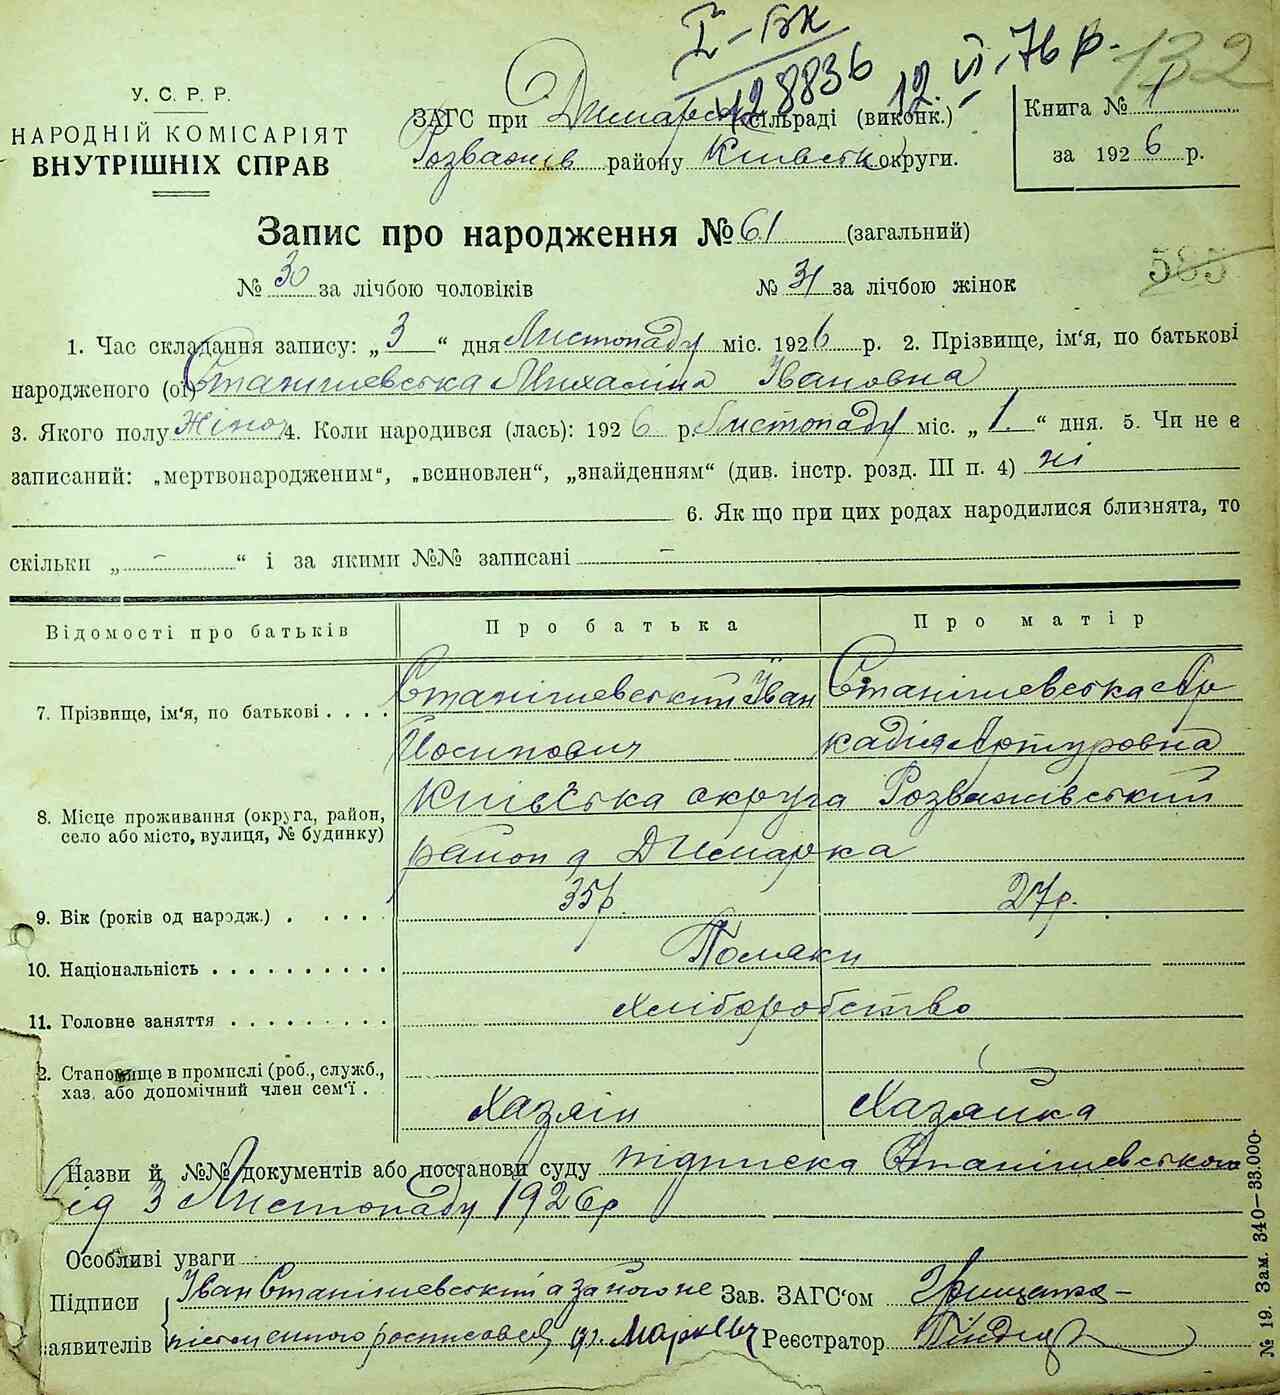 I – БК
428836 12. VI. 76 р.
132
У. С. Р. Р.
НАРОДНІЙ КОМІСАРІЯТ
ВНУТРІШНІХ СПРАВ
ЗАГС при Димарськ сільраді (виконк.)
Розважів району Київськ округи.
Книга № 1
за 1926 р.
Запис про народження № 61 (загальний)
№ 30 за лічбою чоловіків № 31 за лічбою жінок
585
1. Час складання запису: „3“ дня Листопаду міс. 1926 р. 2. Прізвище, ім'я, по батькові
народженого (ої) Станішевська Михаліна Івановна
3. Якого полу Жіноч 4. Коли народився (лась): 1926 р. Листопаду міс. „1.“ дня. 5. Чи не є
записаний: „мертвонародженим“, „всиновлен“, „знайденням“ (див. інстр. розд. III п. 4) ні
6. Як що при цих родах народилися близнята, то
скільки „ – “ і за якими №№ записані –
Відомості про батьків Про батька Про матір
7. Прізвище, ім'я, по батькові . . . . Станішевський Іван Станішевська Ар
Йосипович кадія Артуровна
8. Місце проживання (округа, район, село або місто, вулиця, № будинку) Київська округа Розважівський
район д Димарка
9. Вік (років од народж.) . . . . . 35р. 27р.
10. Національність . . . . . . . . . . Поляки
11. Головне заняття . . . . . . . . . Хліборобство
2. Становище в промислі (роб., служб.,
хаз. або допомічний член сем'ї . Хазяїн Хазяйка
Назви й №№ документів або постанови суду підписка Станішевського
від 3 Листопаду 1926р
Особливі уваги
Підписи Іван Станішевський а за його не Зав. ЗАГС'ом Грищенко
аявителів пісьменного росписовся Реєстратор
№ 19. Зам. 340—33.000